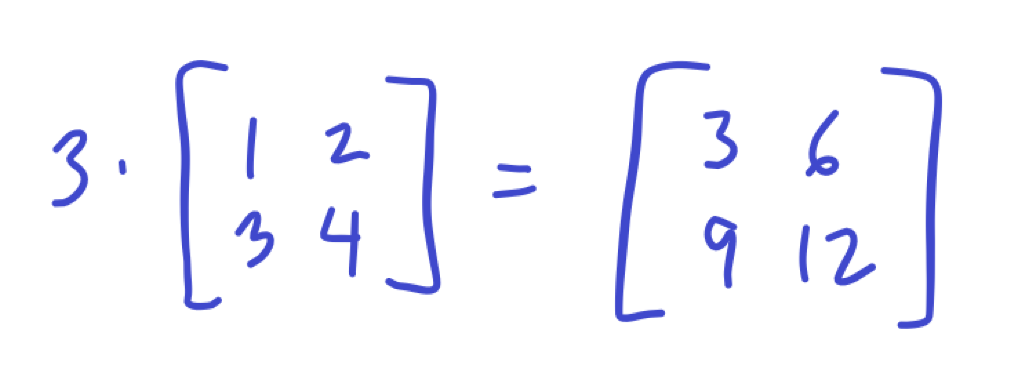 3 · [1 2] = [3 6]
[3 4] [9 12]